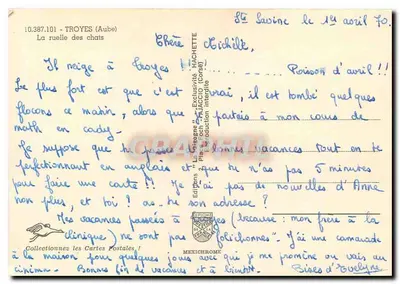 10.387.101 - TROYES (Aube)
La ruelle des chats
Ste Savine le 1er avril 70.
Chère Michèle,
Il neige à Troyes !! ............ Poisson d'avril !!
Le plus fort est que c'est vrai, il est tombé quelques
flocons ce matin, alors que je partais à mon cours de
math en
Je suppose que tu passes de bonnes vacances tout en te
perfectionnant en anglais et que tu n'as pas 5 minutes
pour faire une carte !! Je n'ai pas de nouvelles d'Anne
non plus, et toi ? as-tu son adresse ?
Mes vacances passées à Troyes (because : mon frère à la
clinique) ne sont pas "folichonnes". J'ai une camarade
à la maison pour quelques jours avec qui je me promène ou vais au
cinéma. Bonnes fin de vacances et à bientôt. Bises d'Evelyne
Collectionnez les Cartes Postales !
MEXICHROME
Exclusivité HACHETTE
AJACCIO (Corse)
Reproduction interdite